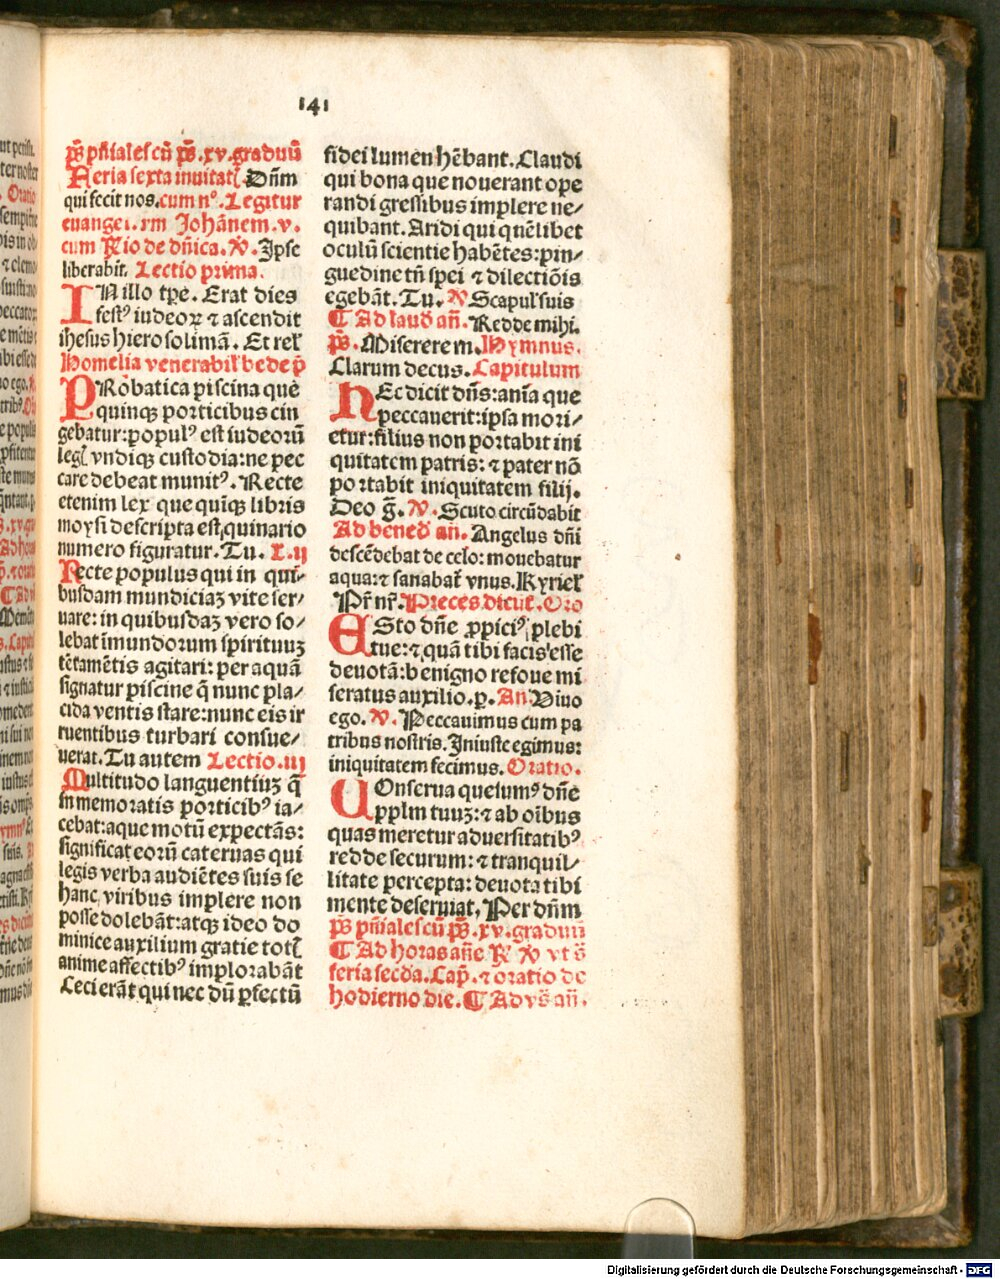 141
p̅s pn̅iales cū p̅s .xv. graduū
Feria sexta inuitat̉ Dn̅m
qui fecit nos. cum nº. Legitur
euangel. scm̄ Johānem .v.
cum R̄io de dn̅ica. V̄. Ipse
liberabit. Lectio prima.
IN illo tp̅e. Erat dies
festꝰ iudeoꝝ ⁊ ascendit
ihesus hierosolimā. Et rel̉
Homelia venerabil̉ bede p̄
PRobatica piscina que
quinqꝫ porticibus cin
gebatur: populꝰ est iudeorū
leg̉ vndiqꝫ custodia: ne pec
care debeat munitꝰ. Recte
etenim lex que quīqꝫ libris
moysi descripta est, quinario
numero figuratur. Tu. L. ij
Recte populus qui in qui⸗
busdam mundiciaꝫ vite ser⸗
uare: in quibusdaꝫ vero so⸗
lebat īmundorum spirituuꝫ
tētamētis agitari: per aquā
signatur piscine q̄ nunc pla⸗
cida ventis stare: nunc eis ir
ruentibus turbari consue⸗
uerat. Tu autem Lectio. iij
Multitudo languentiuꝫ q̄
in memoratis porticibꝰ ia⸗
cebat: aque motū expectās:
significat eorū cateruas qui
legis verba audiētes suis se
hanc viribus implere non
posse dolebāt: atqꝫ ideo do
minice auxilium gratie totꝭ
anime affectibꝰ implorabāt
Ceci erāt qui nec dū ꝑfectū
fidei lumen hēbant. Claudi
qui bona que nouerant ope
randi gressibus implere ne⸗
quibant. Aridi qui quēlibet
oculū scientie habētes: pin⸗
guedine tn̄ spei ⁊ dilectiōis
egebāt. Tu. V̄ Scapul̉ suis
¶ Ad laud̉ an̄. Redde mihi.
p̅s. Miserere m. Hymnus.
Clarum decus. Capitulum
HEc dicit dn̅s: anīa que
peccauerit: ipsa mori⸗
etur: filius non portabit ini
quitatem patris: ⁊ pater nō
portabit iniquitatem filij.
Deo g̅. V̄. Scuto circūdabit
Ad bened̉ an̄. Angelus dn̅i
descēdebat de celo: mouebatur
aqua: ⁊ sanabat̉ vnus. Kyriel̉
Pr̄ nr̄. Preces dicut̉. Oro
ESto dn̅e ꝓpiciꝰ plebi
tue: ⁊ quā tibi facis esse
deuotā: benigno refoue mi
seratus auxilio. p. An̄ Viuo
ego. V̄. Peccauimus cum pa
tribus nostris. Iniuste egimus:
iniquitatem fecimus. Oratio.
COnserua quesumꝰ dn̅e
ppl̅m tuuꝫ: ⁊ ab oībus
quas meretur aduersitatibꝰ
redde securum: ⁊ tranquil⸗
litate percepta: deuota tibi
mente deseruiat. Per dn̅m
p̅s pn̅iales cū p̅s .xv. graduū
¶ Ad horas an̄e R̄ V̄ vt s̄
feria secd̄a. Cap̄. ⁊ oratio de
hodierno die. ¶ Ad vs̄ an̄.
Digitalisierung gefördert durch die Deutsche Forschungsgemeinschaft - DFG